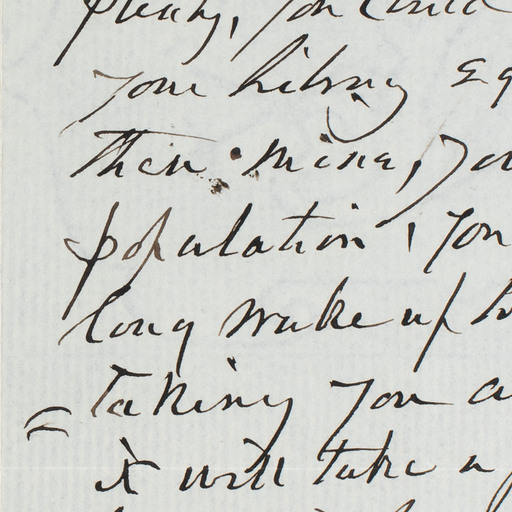 plenty, you could
your library
then mine, you
population, you
long wake up
taking you
it will take a